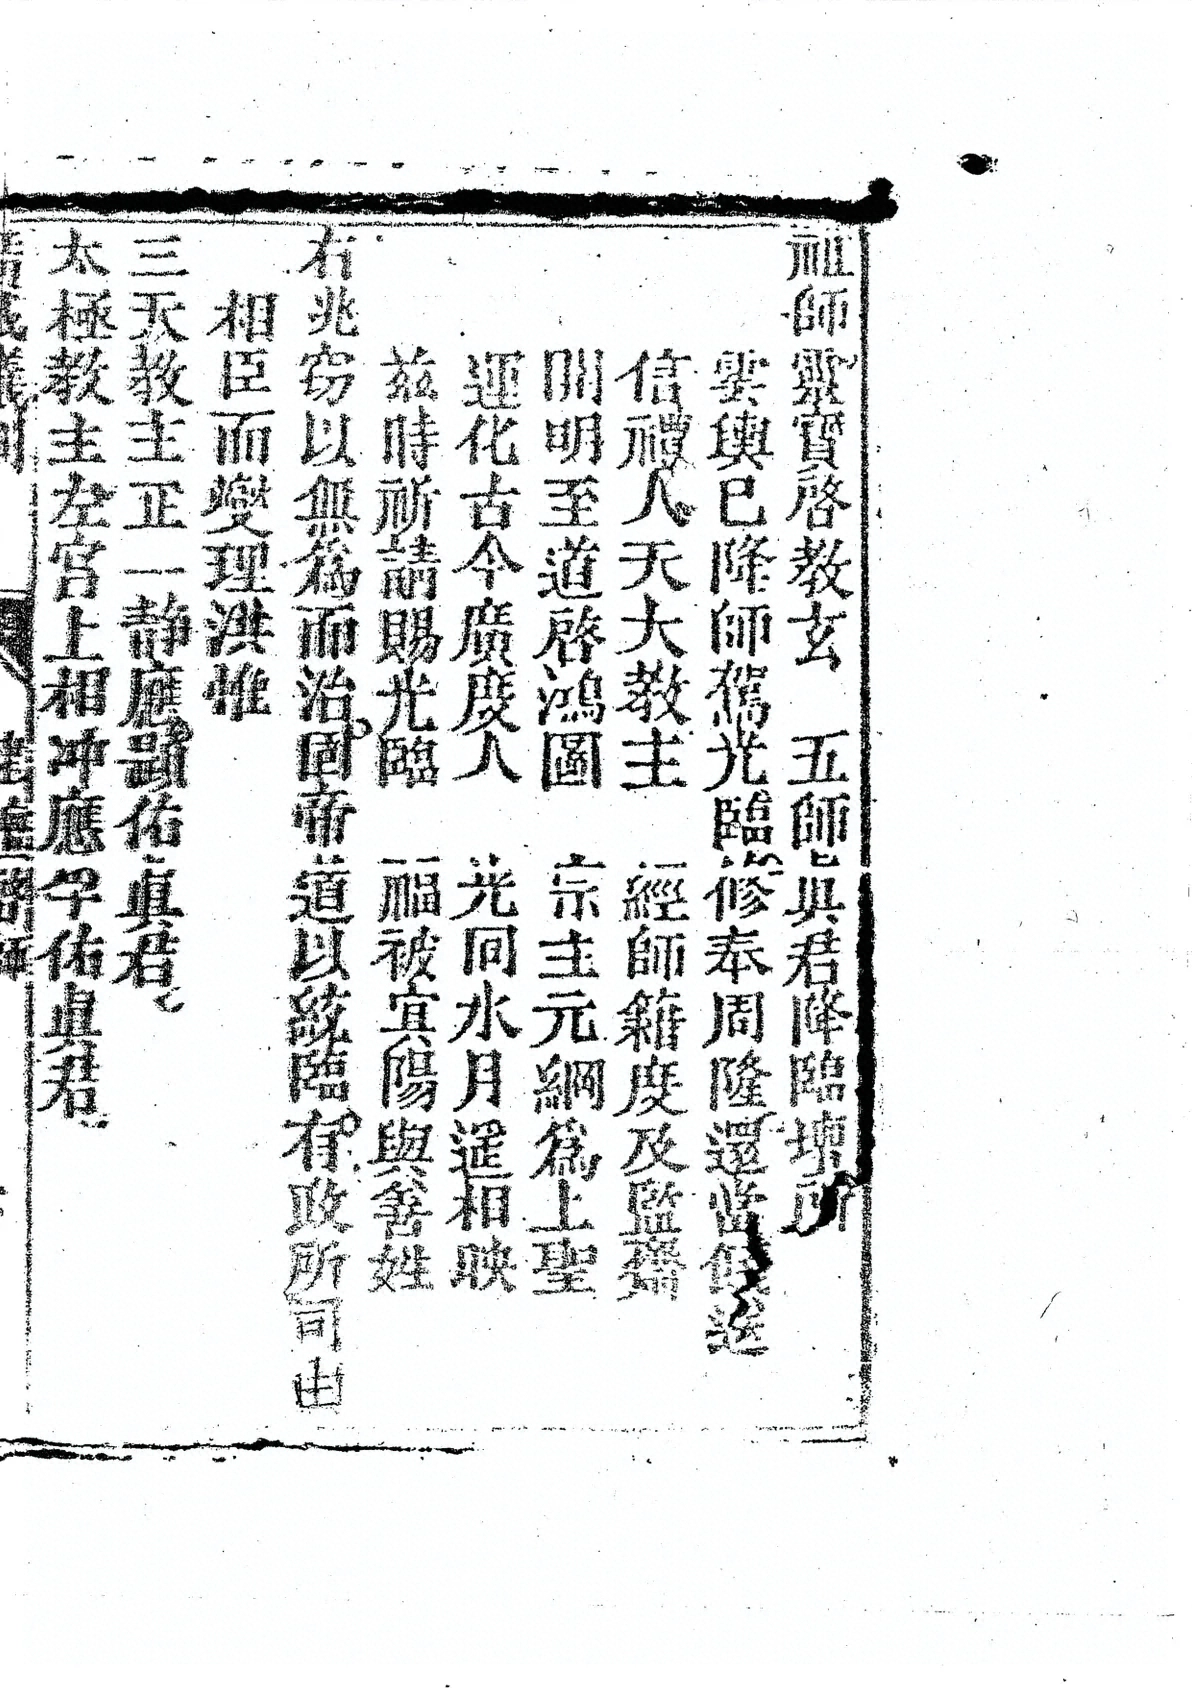 祖師靈寶啓教玄　五師真君降臨壇所
雲輿已降師駕光臨修奉周隆還當
信禮人天大教主　經師籍度及監齋
開明至道啓鴻圖　宗主元綱為上聖
運化古今廣度人　光同水月遥相映
兹時祈請賜光臨　福被冥陽與善姓
右兆窃以無為而治國帝道以統臨有政所司由
相臣而燮理洪惟
三天教主正一静應顕佑真君
太極教主左宮上相冲應孚佑真君